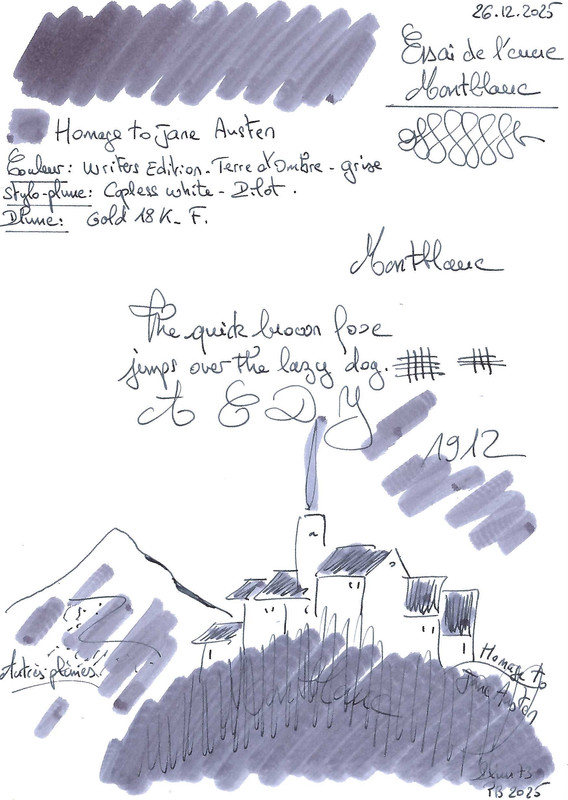 26.12.2025
Essai de l'encre
Montblanc
Homage to Jane Austen
Couleur: Writers Edition - Terre d'Ombre - grise
Stylo-plume: Capless white - Pilot.
Plume: Gold 18K - F.
Montblanc
The quick brown foxe
jumps over the lazy dog.
A E D Y
1912
Autres plaines.
Homage to
Jane Austen
Montblanc
PB 2025